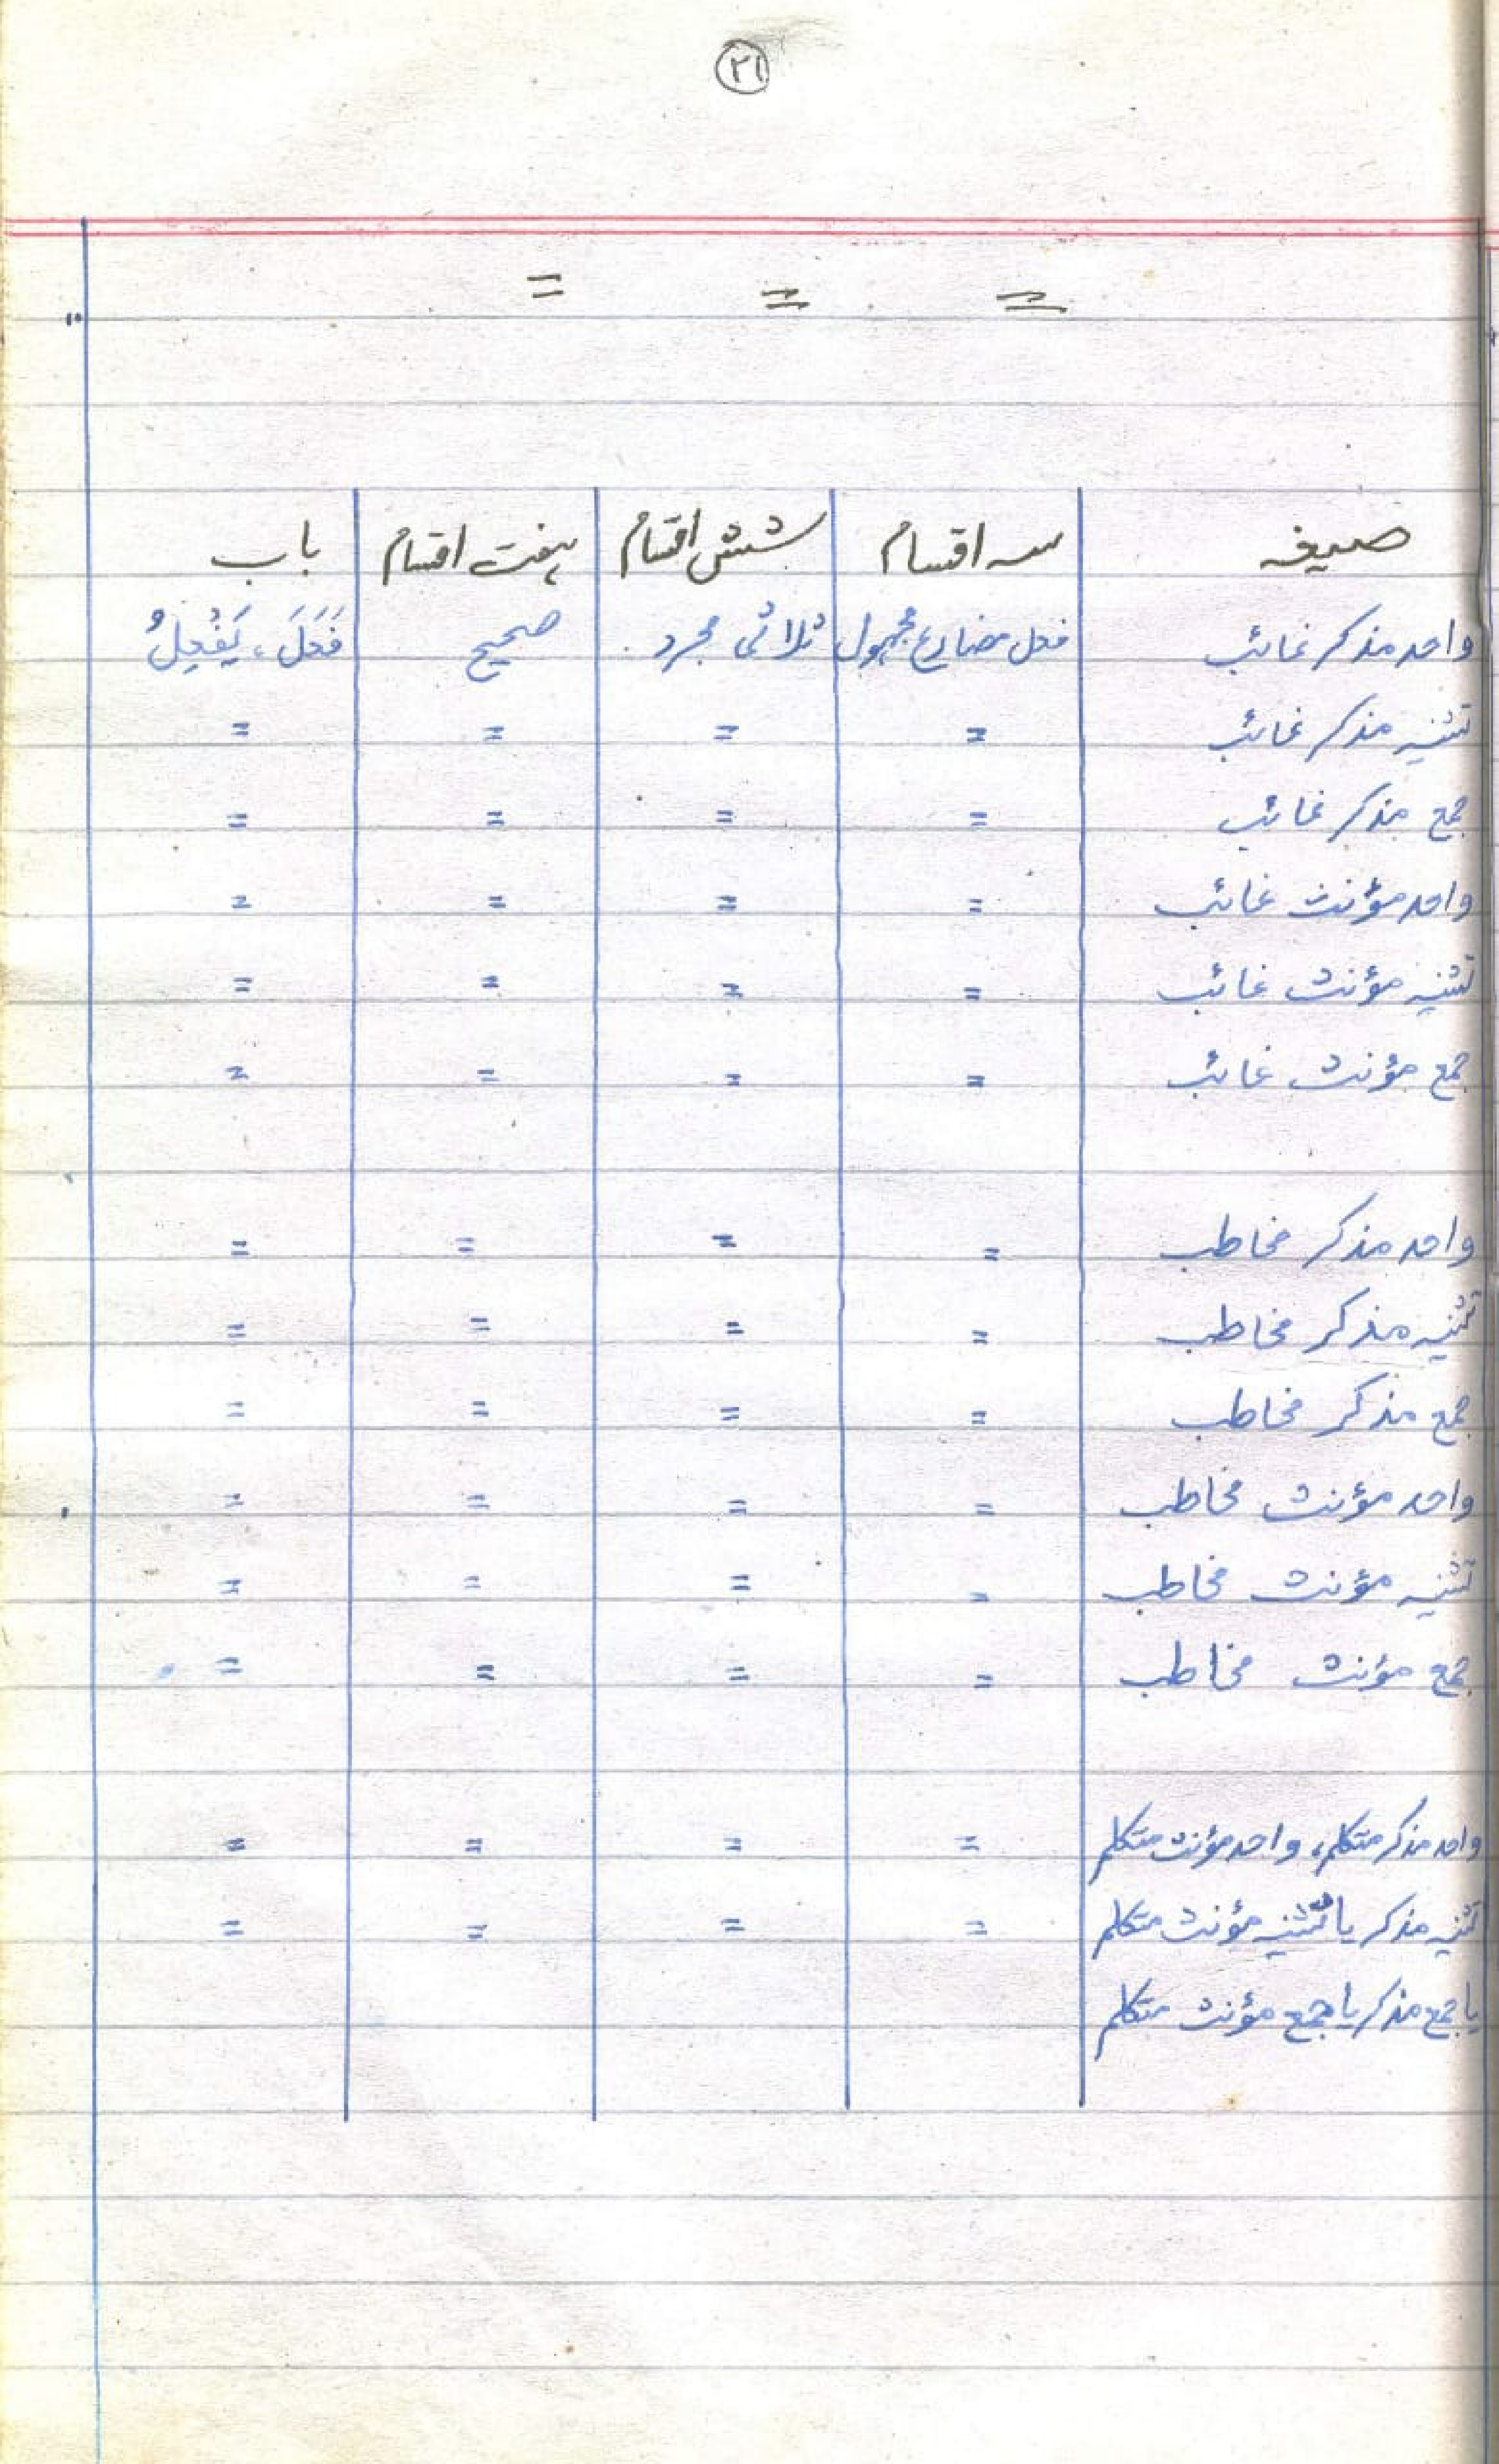 ۲۱
= = =
صیغہ سہ اقسام شش اقسام ہفت اقسام باب
واحد مذکر غائب فعل مضارع مجہول ثلاثی مجرد صحیح فَعَلَ، یَفْعِلُ
تثنیہ مذکر غائب = = = =
جمع مذکر غائب = = = =
واحد مؤنث غائب = = = =
تثنیہ مؤنث غائب = = = =
جمع مؤنث غائب = = = =
واحد مذکر مخاطب = = = =
تثنیہ مذکر مخاطب = = = =
جمع مذکر مخاطب = = = =
واحد مؤنث مخاطب = = = =
تثنیہ مؤنث مخاطب = = = =
جمع مؤنث مخاطب = = = =
واحد مذکر متکلم، واحد مؤنث متکلم = = = =
تثنیہ مذکر یا تثنیہ مؤنث متکلم = = = =
یا جمع مذکر یا جمع مؤنث متکلم